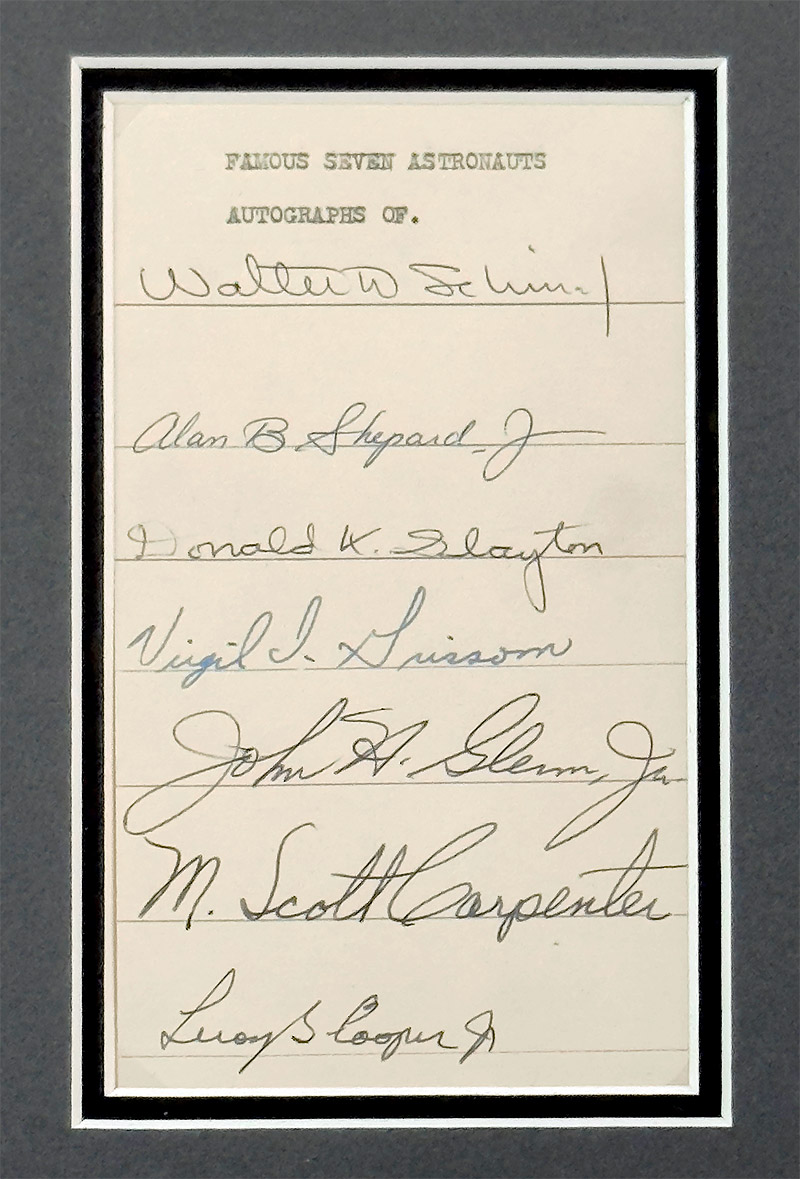 FAMOUS SEVEN ASTRONAUTS
AUTOGRAPHS OF.
Walter M Schirra Jr
Alan B Shepard, Jr
Donald K. Slayton
Virgil I. Grissom
John H. Glenn, Jr.
M. Scott Carpenter
Leroy G Cooper Jr